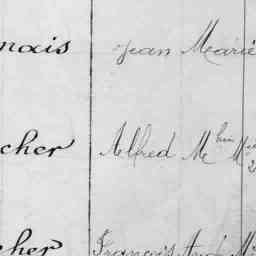 nais Jean Marie
cher Alfred Mhin
cher François